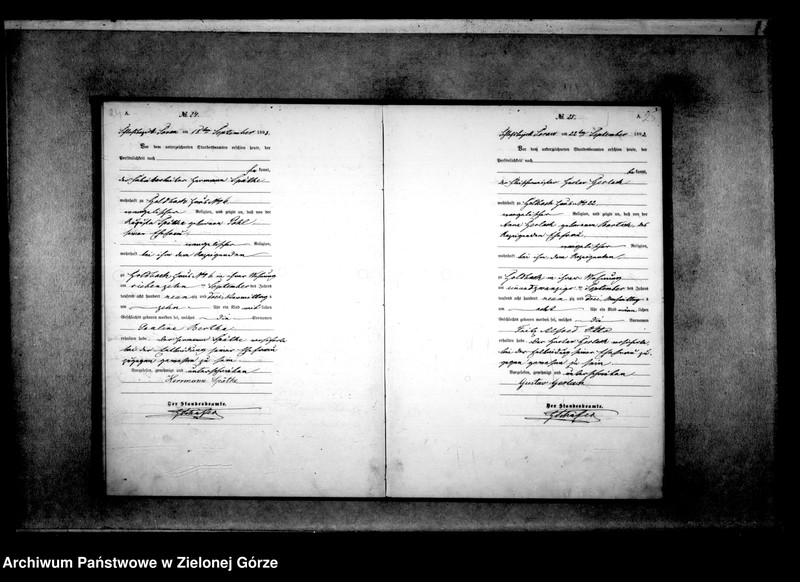 A.
№ 24.
Sorau am 18ten September 1893.
Vor dem unterzeichneten Standesbeamten erschien heute, der
Persönlichkeit nach
kannt,
der Hermann Späthe
wohnhaft zu Goldbach Haus № 6
evangelischer Religion, und zeigte an, daß von der
Augusta Späthe geborenen Pohl
seiner Ehefrau
evangelischer Religion,
wohnhaft bei ihm dem Anzeigenden
zu Goldbach Haus № 6 in ihrer Wohnung
am siebenzehn ten September des Jahres
tausend acht hundert neunzig und drei Vormittags
um zehn Uhr ein Kind weiblichen
Geschlechts geboren worden sei, welches die Vornamen
Pauline Bertha
erhalten habe. der Hermann Späthe versicherte
bei der Entbindung seiner Ehefrau
zugegen gewesen zu sein
Vorgelesen, genehmigt und unterschrieben
Herrmann Späthe
Der Standesbeamte.
A.
№ 25.
Sorau am 22ten September 1893
Vor dem unterzeichneten Standesbeamten erschien heute, der
Persönlichkeit nach
be kannt,
der Gustav Gerlach
wohnhaft zu Goldbach Haus № 22
evangelischer Religion, und zeigte an, daß von der
Anna Gerlach geborenen des
Anzeigenden Ehefrau
evangelischer Religion,
wohnhaft bei ihm dem Anzeigenden
zu Goldbach in ihrer Wohnung
am einundzwanzigsten September des Jahres
tausend acht hundert neunzig und drei Nachmittags
um acht Uhr ein Kind männlichen
Geschlechts geboren worden sei, welches die Vornamen
Fritz Alfred Otto
erhalten habe. der Gustav Gerlach versicherte
bei der Entbindung seiner Ehefrau zu-
gegen gewesen zu sein
Vorgelesen, genehmigt und unterschrieben
Gustav Gerlach
Der Standesbeamte.
Archiwum Państwowe w Zielonej Górze